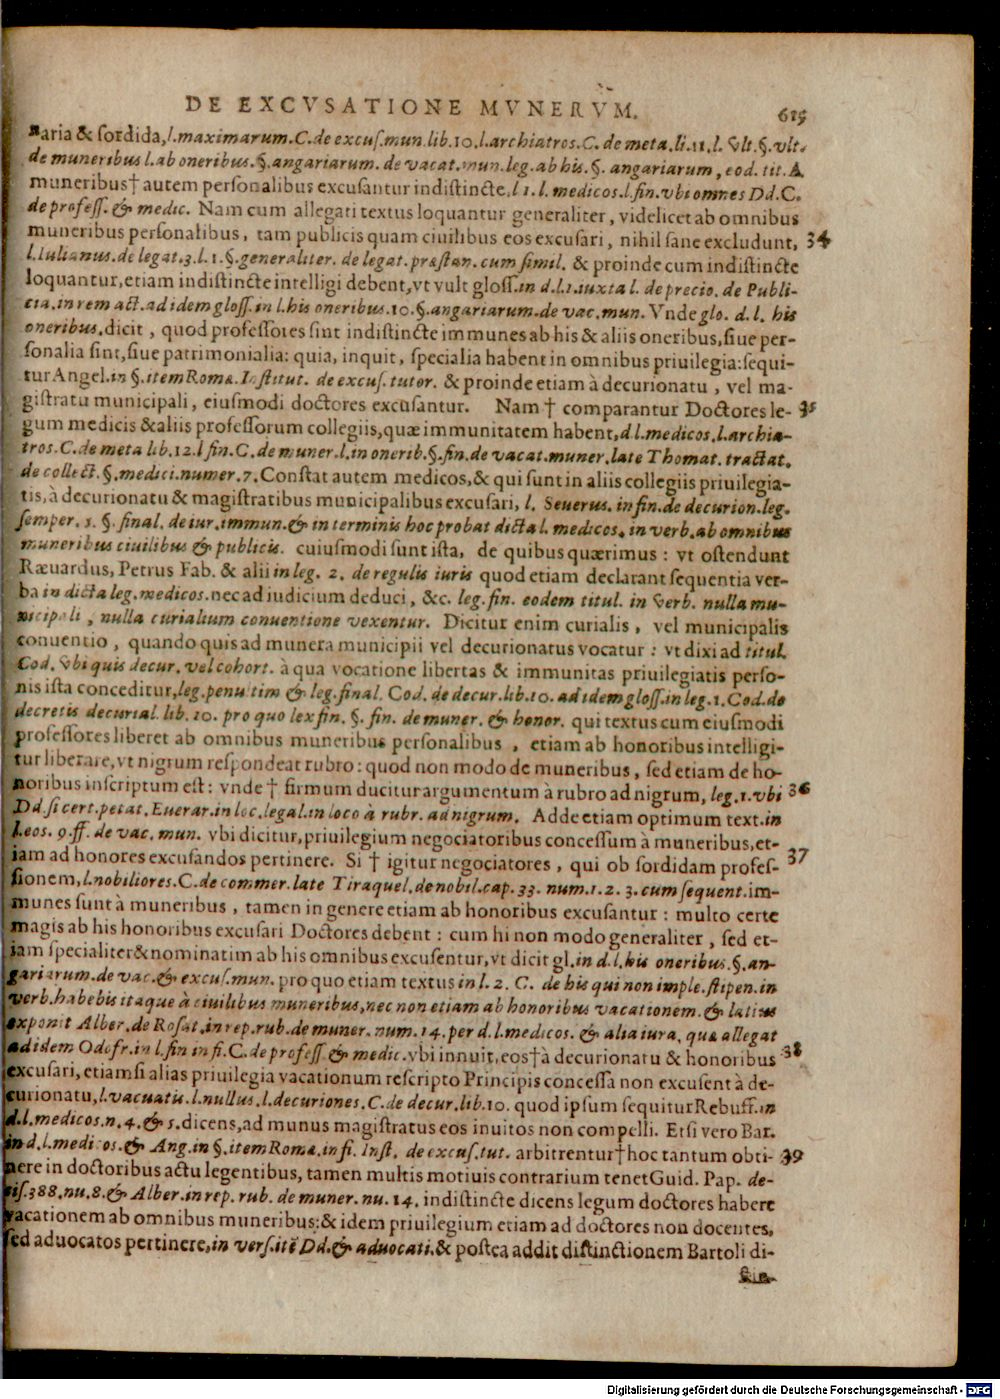 DE EXCVSATIONE MVNERVM. 615
naria & sordida, l. maximarum. C. de excus. mun. lib. 10. l. archiatros. C. de meta. li. 11. l. vlt. §. vlt.
de muneribus l. ab oneribus. §. angariarum. de vacat. mun. leg. ab his. §. angariarum, eod. tit. A
muneribus† autem personalibus excusantur indistincte, l 1. l. medicos. l. fin. vbi omnes Dd. C.
de profess. & medic. Nam cum allegati textus loquantur generaliter, videlicet ab omnibus
muneribus personalibus, tam publicis quam ciuilibus eos excusari, nihil sane excludunt, 34
l. Iulianus. de legat. 3. l. 1. §. generaliter. de legat. præstan. cum simil. & proinde cum indistincte
loquantur, etiam indistincte intelligi debent, vt vult gloss. in d. l. 1. iuxta l. de precio. de Publi-
cia. in rem act. ad idem gloss. in l. his oneribus. 10. §. angariarum. de vac. mun. Vnde glo. d. l. his
oneribus. dicit, quod professores sint indistincte immunes ab his & aliis oneribus, siue per-
sonalia sint, siue patrimonialia: quia, inquit, specialia habent in omnibus priuilegia: sequi-
tur Angel. in §. item Romæ. Institut. de excus. tutor. & proinde etiam à decurionatu, vel ma-
gistratu municipali, eiusmodi doctores excusantur. Nam † comparantur Doctores le- 35
gum medicis & aliis professorum collegiis, quæ immunitatem habent, d l. medicos. l. archia-
tros. C. de meta lib. 12. l fin. C. de muner. l. in onerib. §. fin. de vacat. muner. late Thomat. tractat.
de collect. §. medici. numer. 7. Constat autem medicos, & qui sunt in aliis collegiis priuilegia-
tis, à decurionatu & magistratibus municipalibus excusari, l. Seuerus. in fin. de decurion. leg.
semper. 5. §. final. de iur. immun. & in terminis hoc probat dicta l. medicos. in verb. ab omnibus
muneribus ciuilibus & publicis. cuiusmodi sunt ista, de quibus quærimus: vt ostendunt
Ræuardus, Petrus Fab. & alii in leg. 2. de regulis iuris quod etiam declarant sequentia ver-
ba in dicta leg. medicos. nec ad iudicium deduci, &c. leg. fin. eodem titul. in verb. nulla mu-
nicipali, nulla curialium conuentione vexentur. Dicitur enim curialis, vel municipalis
conuentio, quando quis ad munera municipii vel decurionatus vocatur: vt dixi ad titul.
Cod. vbi quis decur. vel cohort. à qua vocatione libertas & immunitas priuilegiatis perso-
nis ista conceditur, leg. penultim & leg. final. Cod. de decur. lib. 10. ad idem gloss. in leg. 1. Cod. de
decretis decurial. lib. 10. pro quo lex fin. §. fin. de muner. & honor. qui textus cum eiusmodi
professores liberet ab omnibus muneribus personalibus, etiam ab honoribus intelligi-
tur liberare, vt nigrum respondeat rubro: quod non modo de muneribus, sed etiam de ho-
noribus inscriptum est: vnde † firmum ducitur argumentum à rubro ad nigrum, leg. 1. vbi 36
Dd. si cert. petat. Euerar. in loc. legal. in loco à rubr. ad nigrum. Adde etiam optimum text. in
l. eos. 9. ff. de vac. mun. vbi dicitur, priuilegium negociatoribus concessum à muneribus, et-
iam ad honores excusandos pertinere. Si † igitur negociatores, qui ob sordidam profes- 37
sionem, l. nobiliores. C. de commer. late Tiraquel. de nobil. cap. 33. num. 1. 2. 3. cum sequent. im-
munes sunt à muneribus, tamen in genere etiam ab honoribus excusantur: multo certe
magis ab his honoribus excusari Doctores debent: cum hi non modo generaliter, sed et-
iam specialiter & nominatim ab his omnibus excusentur, vt dicit gl. in d. l. his oneribus. §. an-
gariarum. de vac. & excus. mun. pro quo etiam textus in l. 2. C. de his qui non imple. stipen. in
verb. habebis itaque à ciuilibus muneribus, nec non etiam ab honoribus vacationem. & latius
exponit Alber. de Rosat. in rep. rub. de muner. num. 14. per d. l. medicos. & alia iura, quæ allegat
ad idem Odofr. in l. fin in fi. C. de profess. & medic. vbi innuit, eos † à decurionatu & honoribus 38
excusari, etiamsi alias priuilegia vacationum rescripto Principis concessa non excusent à de-
curionatu, l. vacuatis. l. nullus. l. decuriones. C. de decur. lib. 10. quod ipsum sequitur Rebuff. in
d. l. medicos. n. 4. & 5. dicens, ad munus magistratus eos inuitos non compelli. Etsi vero Bar.
in d. l. medicos. & Ang. in §. item Romæ. in fi. Inst. de excus. tut. arbitrentur † hoc tantum obti- 39
nere in doctoribus actu legentibus, tamen multis motiuis contrarium tenet Guid. Pap. de-
cis. 388. nu. 8. & Alber. in rep. rub. de muner. nu. 14. indistincte dicens legum doctores habere
vacationem ab omnibus muneribus: & idem priuilegium etiam ad doctores non docentes,
sed aduocatos pertinere, in vers. itē Dd. & aduocati. & postea addit distinctionem Bartoli di-
Digitalisierung gefördert durch die Deutsche Forschungsgemeinschaft - DFG